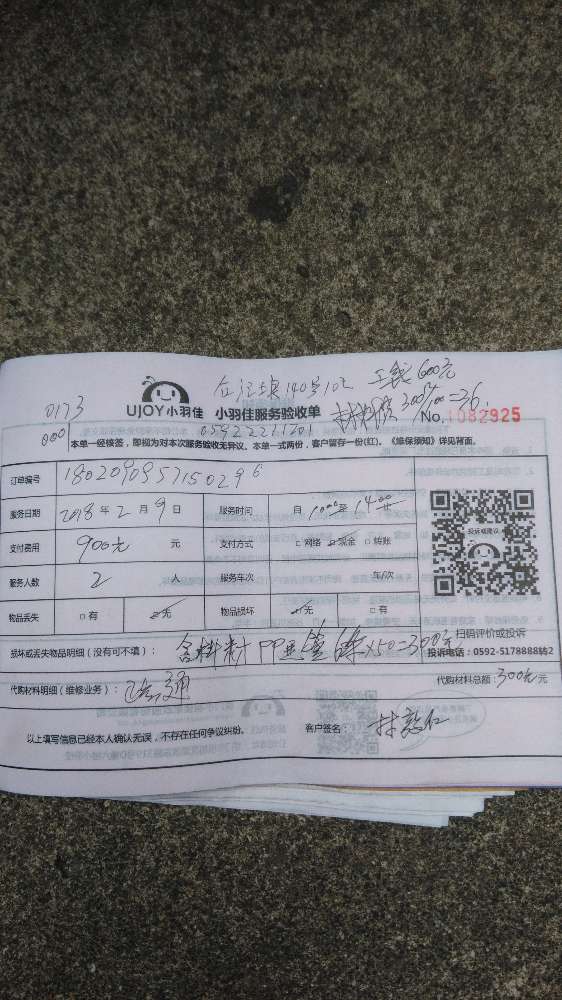 0173
000
UJOY小羽佳
小羽佳服务验收单
140号102
600元
05922221201
No.1082925
本单一经核签,即视为对本次服务验收无异议。本单一式两份,客户留存一份(红)。《维保须知》详见背面。
订单编号 1802090957150296
服务日期 2018年2月9日 服务时间 自10:00至14:00
支付费用 900元 元 支付方式 □网络 ☑现金 □转账
服务人数 2 人 服务车次 车/次
物品丢失 □有 ☑无 物品损坏 ☑无 □有
投诉或建议
扫码评价或投诉
损坏或丢失物品明细(没有可不填): 含材料 PP X50=300元
投诉电话:0592-5178888转2
代购材料明细(维修业务): 疏通
代购材料总额:300元元
以上填写信息已经本人确认无误,不存在任何争议纠纷。
客户签名: